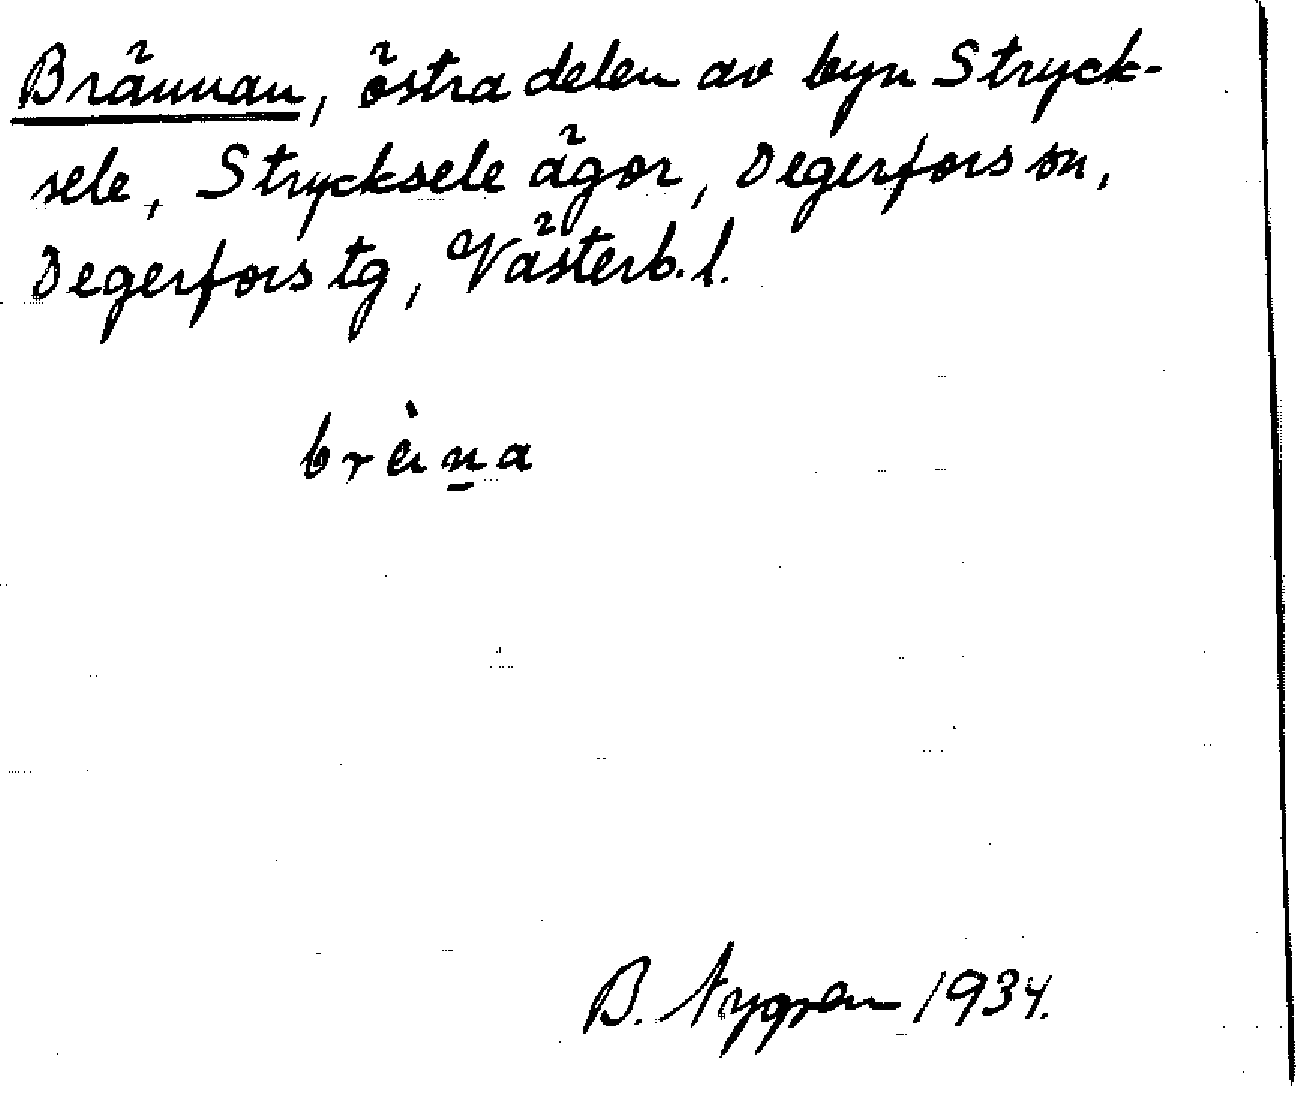 Brännan, östra delen av byn Stryck-
sele, Strycksele ägor, Degerfors sn,
Degerfors tg, Västerb. l.
brèn̠a
B. Nygren 1934.